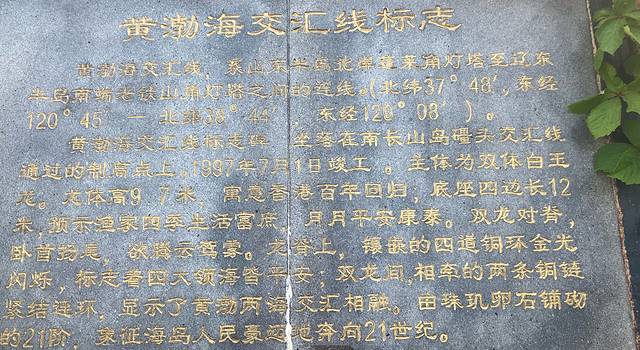 黄渤海交汇线标志
黄渤海交汇线，系山东半岛北端蓬莱角灯塔至辽东
半岛南端老铁山角灯塔之间的连线。(北纬37°48′，东经
120°45′—北纬38°44′ 东经120°08′)。
黄渤海交汇线标志碑 坐落在南长山岛礓头交汇线
通过的制高点上。1997年7月1日竣工。主体为双体白玉
龙。龙体高9.7米，寓意香港百年回归；底座四边长12
米，预示渔家四季生活富庶、月月平安康泰。双龙对脊，
卧首扬尾，欲腾云驾雾。龙脊上，镶嵌的四道铜环金光
闪烁，标志着四大领海皆平安；双龙间，相牵的两条铜链
紧结连环，显示了黄渤两海交汇相融。由珠玑卵石铺砌
的21阶，象征海岛人民豪迈地奔向21世纪。